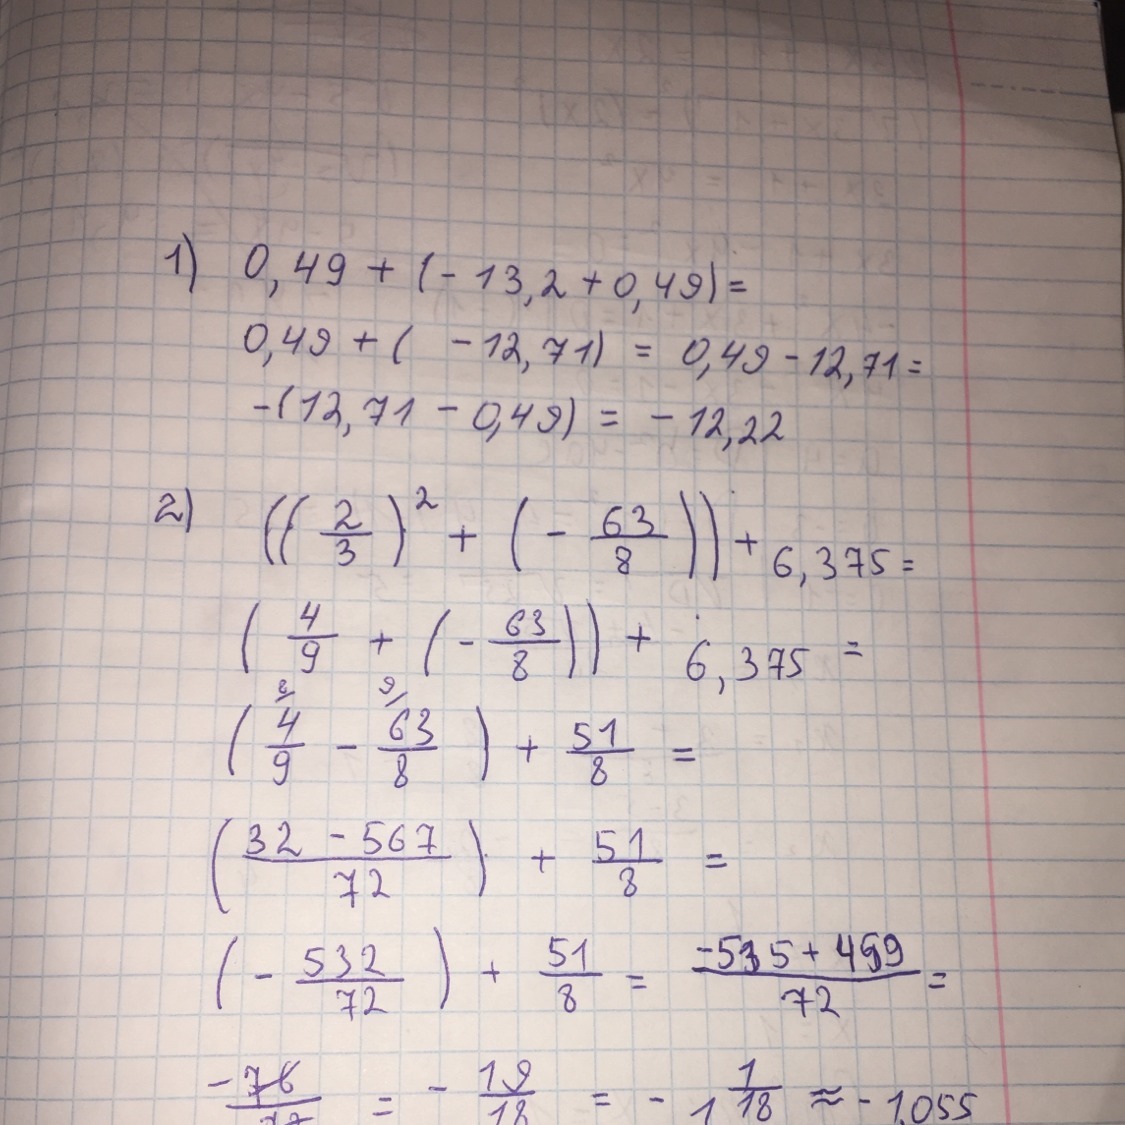 1) 0,49 + (- 13,2 + 0,49) =
0,49 + ( - 12,71) = 0,49 - 12,71 =
-(12,71 - 0,49) = - 12,22
2) ((2/3)^2 + (- 63/8)) + 6,375 =
(4/9 + (- 63/8)) + 6,375 =
8/ 9/
(4/9 - 63/8) + 51/8 =
(32 - 567/72) + 51/8 =
(- 532/72) + 51/8 = -535 + 459/72 =
-76/72 = - 19/18 = - 1 1/18 ≈ - 1,055